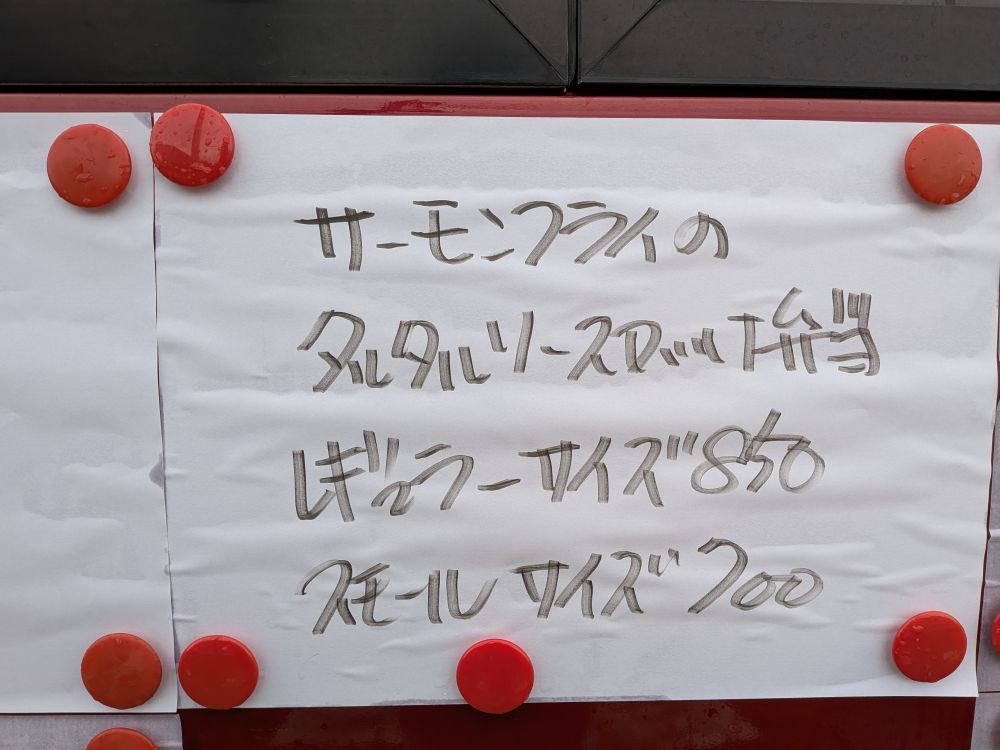 サーモンフライの
タルタルソース 弁当
レギュラーサイズ850
スモールサイズ700